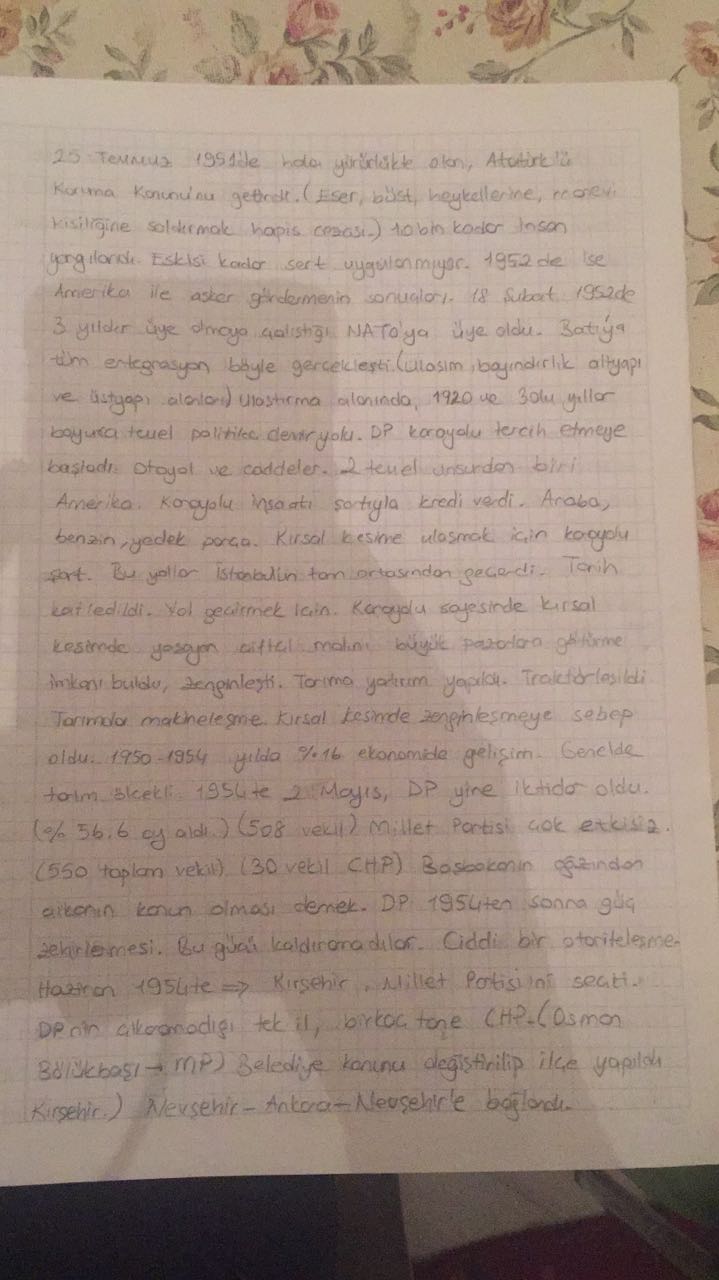 25 Temmuz 1951'de hala yürürlükte olan, Atatürk'ü
Koruma Kanunu'nu getirdi. (Eser, büst, heykellerine, manevi
kişiliğine saldırmak hapis cezası.) 10 bin kadar insan
yargılandı. Eskisi kadar sert uygulanmıyor. 1952 de ise
Amerika ile asker göndermenin sonuçları. 18 Şubat 1952de
3 yıldır üye olmaya çalıştığı NATO'ya üye oldu. Batı'ya
tüm entegrasyon böyle gerçekleşti. (Ulaşım, bayındırlık altyapı
ve üstyapı alanları) Ulaştırma alanında, 1920 ve 30lu yıllar
boyunca temel politika demiryolu. DP karayolu tercih etmeye
başladı. Otoyol ve caddeler. 2 temel unsurdan biri
Amerika. Karayolu inşaatı şartıyla kredi verdi. Araba,
benzin, yedek parça. Kırsal kesime ulaşmak için karayolu
şart. Bu yollar İstanbulin tam ortasından geçerdi. Tarih
katledildi. Yol geçirmek için. Karayolu sayesinde kırsal
kesimde yaşayan çiftçi malını büyük pazarlara götürme
imkanı buldu, zenginleşti. Tarıma yatırım yapıldı. Traktörleşildi
Tarımda makineleşme kırsal kesimde zenginleşmeye sebep
oldu. 1950-1954 yılda %16 ekonomide gelişim. Genelde
tarım ölçekli. 1954te 2 Mayıs, DP yine iktidar oldu.
(% 56.6 oy aldı.) (508 vekil) Millet Partisi çok etkisiz.
(550 toplam vekil) (30 vekil CHP) Başbakanın ağzından
çıkanın kanun olması demek. DP 1954ten sonra güç
zehirlenmesi. Bu gücü kaldıramadılar. Ciddi bir otoriteleşme.
Haziran 1954te ⇒ Kırşehir, Millet Partisi'ni seçti.
DP'nin çıkaramadığı tek il, birkaç tane CHP. (Osman
Bölükbaşı → MP) Belediye kanunu değiştirilip ilçe yapıldı
Kırşehir.) Nevşehir - Ankara - Nevşehir'e bağlandı.